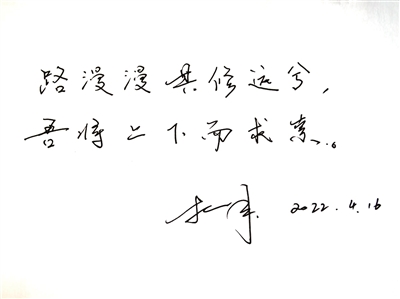 路漫漫其修远兮,
吾将上下而求索。
2022.4.16